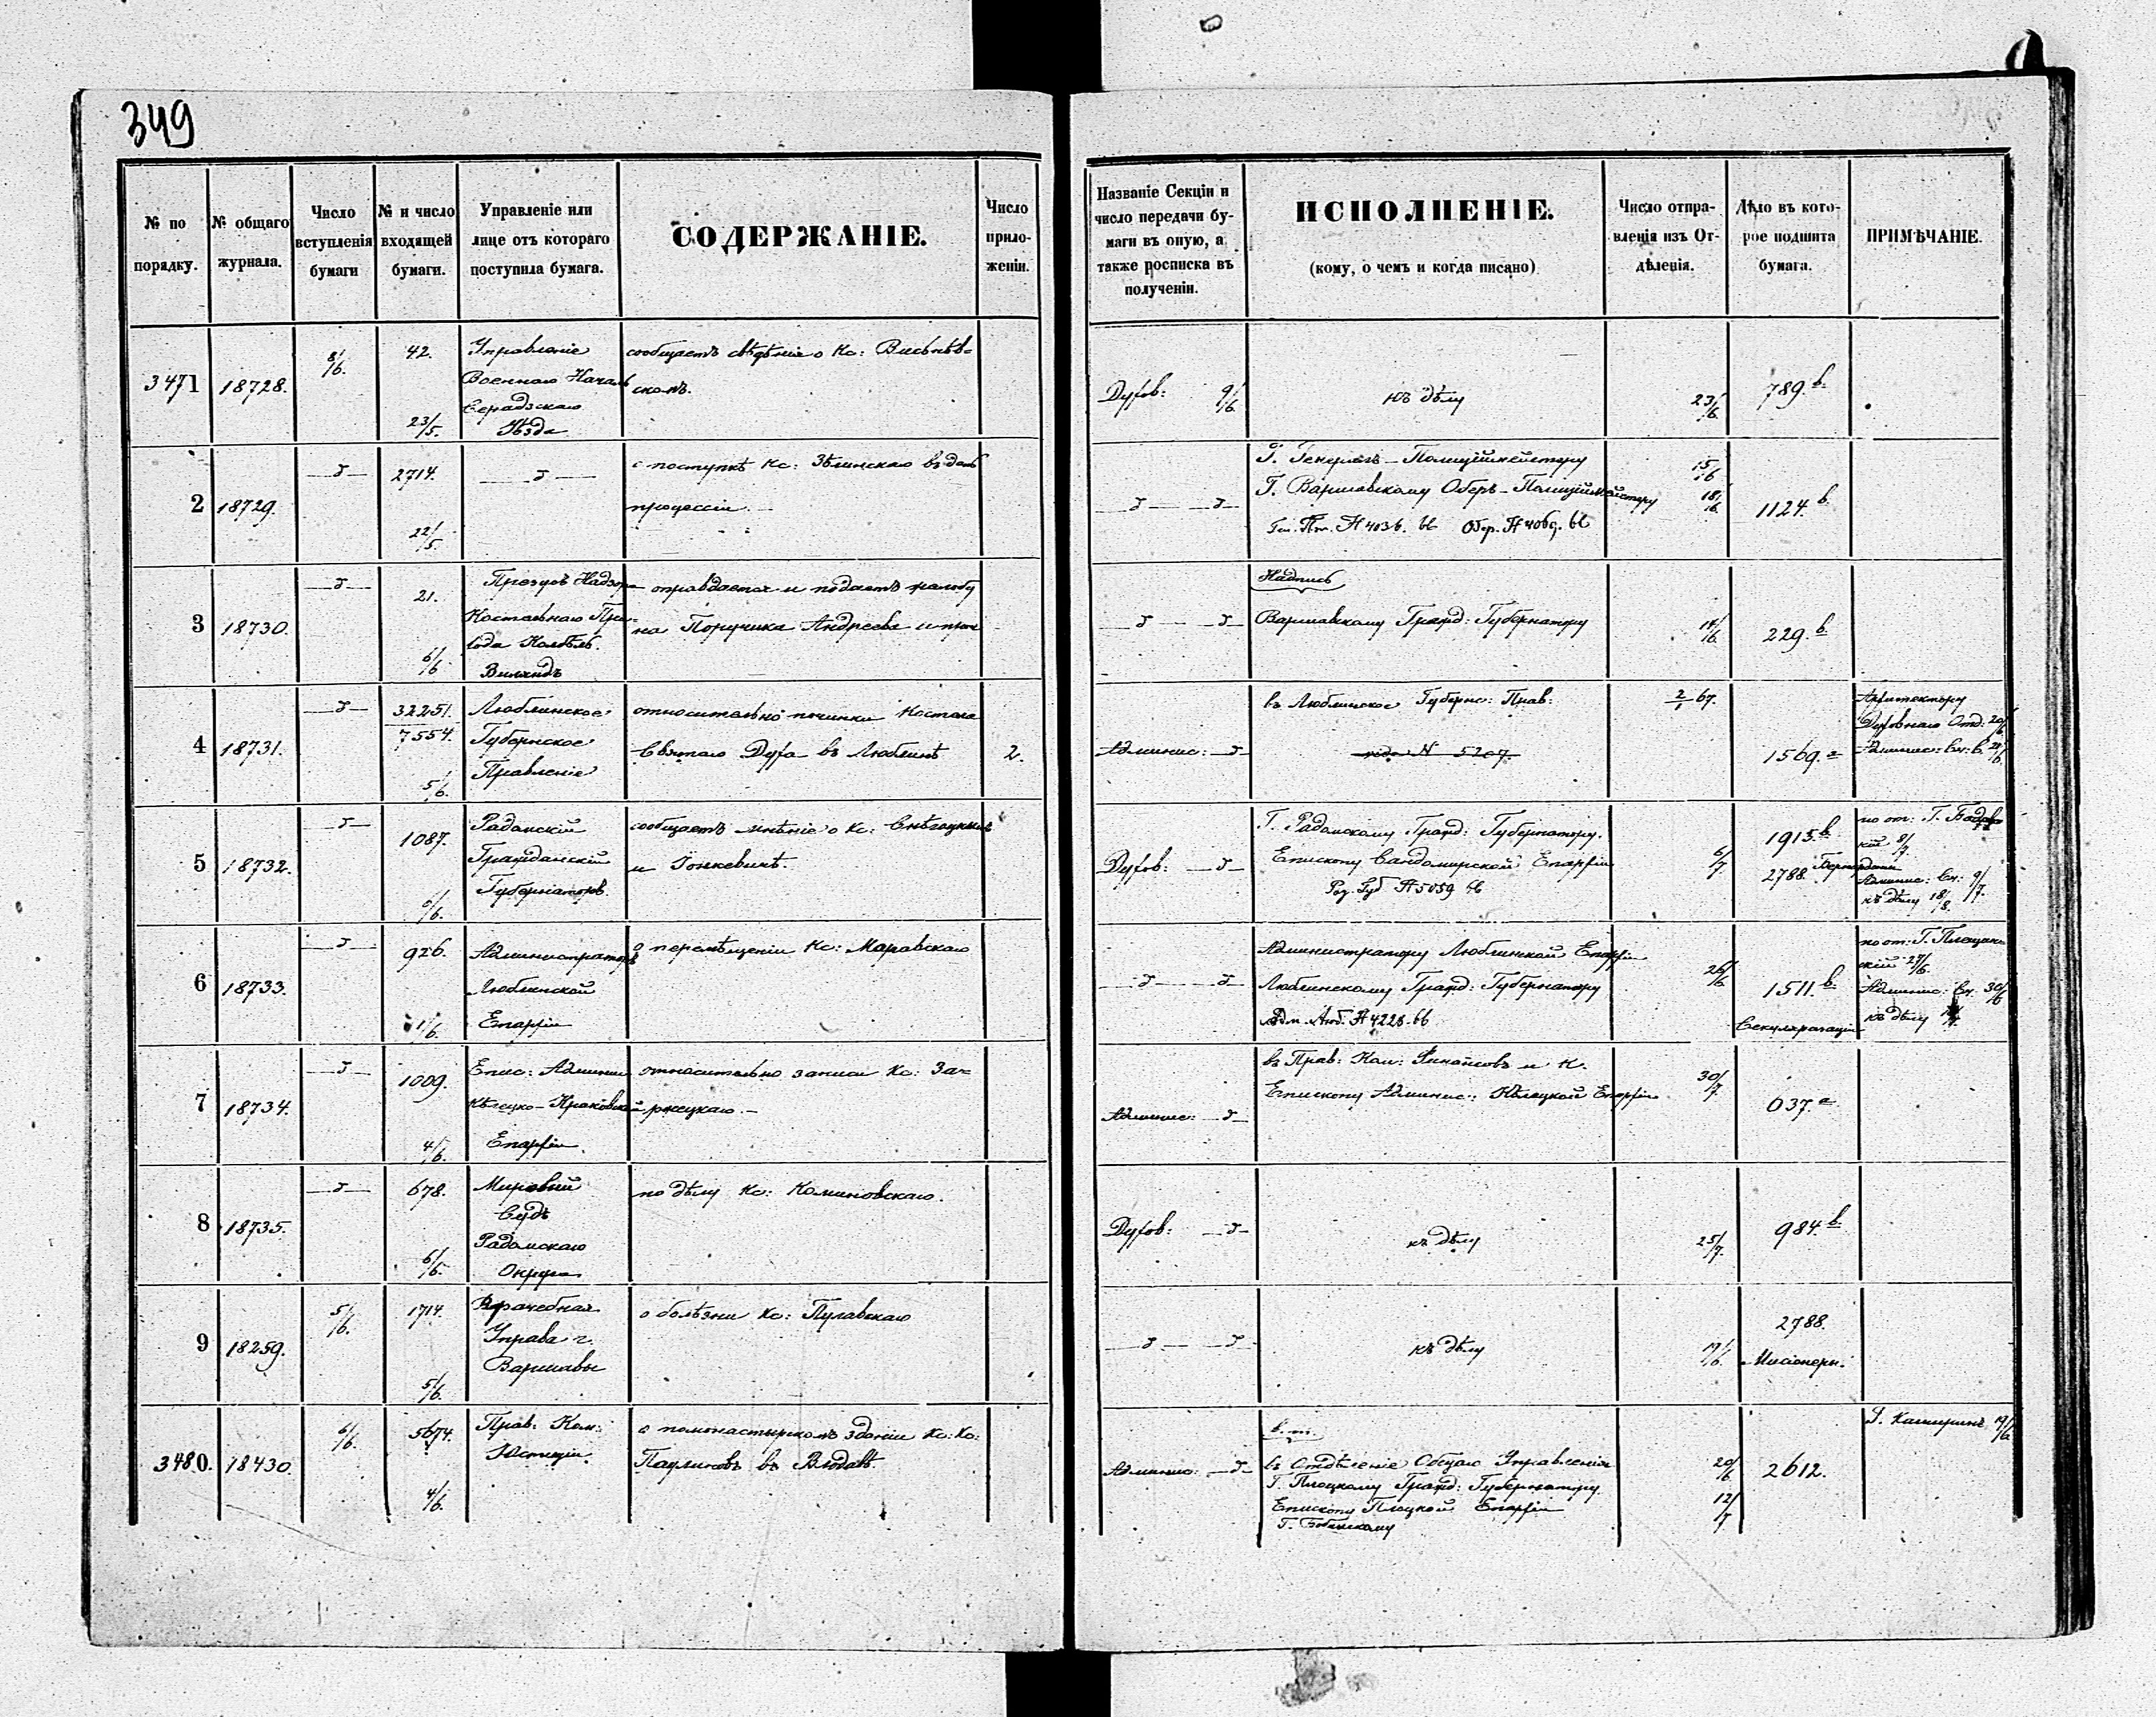 349
№ по порядку.
№ общаго журнала.
Число вступленія бумаги
№ и число входящей бумаги.
Управленіе или лице отъ котораго поступила бумага.
СОДЕРЖАНІЕ.
Число приложеніи.
Названіе Секціи и число передачи бумаги въ оную, а также росписка въ полученіи.
ИСПОЛНЕНІЕ.
(кому, о чемъ и когда писано)
Число отправленія изъ Отдѣленія.
Дѣло въ которое подшита бумага.
ПРИМѢЧАНІЕ.
3471
18728.
8/6.
42.
23/5.
Управленіе
Военнаго Началь
Серадзскаго
Уѣзда
сообщаетъ свѣдѣніе о Кс:
скомъ.
Духов: 9/6.
къ дѣлу
23/6.
789.в.
2
18729.
2714.
22/5.
о поступкѣ Кс: Зѣлинскаго
процессіи.
Г. Генералъ-Полиціймейстеру
Г. Варшавскому Оберъ-Полиціймейстеру
№ 4036. 66 Обер. № 4069. 66
15/6
18/6.
1124.в.
3
18730.
21.
6/6
Надзора
Костельнаго При-
хода
оправдается и подаетъ жалобу
на Поручика Андреева и проч
Надпись
Варшавскому Гражд: Губернатору
229.в
4
18731.
32251.
7554.
5/6.
Люблинское
Губернское
Правленіе
относительно починки Костела
Святаго Духа въ Люблинѣ
2.
Админис:
въ Люблинское Губернс: Прав:
№ 5207.
2/1 67.
1569.а
Архитектору
Духовнаго Отд: 20/6
5
18732.
1087.
6/6.
Радомскій
Гражданскій
Губернаторъ.
сообщаетъ мнѣніе о Кс:
и Гонкевичѣ.
Духов:
Г. Радомскому Гражд: Губернатору.
Епископу Сандомирской Епархіи
Рад. Губ № 5059 66
6/7.
1915.в
2788.
къ дѣлу 18/8.
6
18733.
926.
1/6.
Администраторъ
Люблинской
Епархіи
о перемѣщеніи Кс: Маравскаго
Администратору Люблинской Епархіи
Люблинскому Гражд: Губернатору
Адм. Люб. № 4228. 66
26/6
1511.в
Секуляризаціи
скій 27/6.
30/6
къ дѣлу
7
18734.
1009.
4/6.
Епис: Админи
Кѣлецко-Краковской
Епархіи.
относительно записи Кс: За-
ржецкаго.
Админис:
въ Прав: Ком: Финансовъ и К.
Епископу Админис: Кѣлецкой Епархіи
30/7.
637.а
8
18735.
678.
6/6.
Мировый
Судъ
Радомскаго
Округа
по дѣлу Кс: Коминовскаго.
Духов:
къ дѣлу
25/7.
984.в.
9
18259.
5/6.
1714.
5/6.
Врачебная
Управа г.
Варшавы
о болѣзни Кс: Пулавскаго
къ дѣлу
2788.
Мисіонери.
3480.
18430.
6/6.
5674.
4/6.
Прав: Ком:
Юстиціи.
о помонастырскомъ зданіи Кс: Кс:
Паулиновъ въ
Админис:
въ Отдѣленіе Общаго Управленія
Г. Плоцкому Гражд: Губернатору.
Епископу Плоцкой Епархіи
20/6
12/7
2612.
Г. Каширинъ 19/6